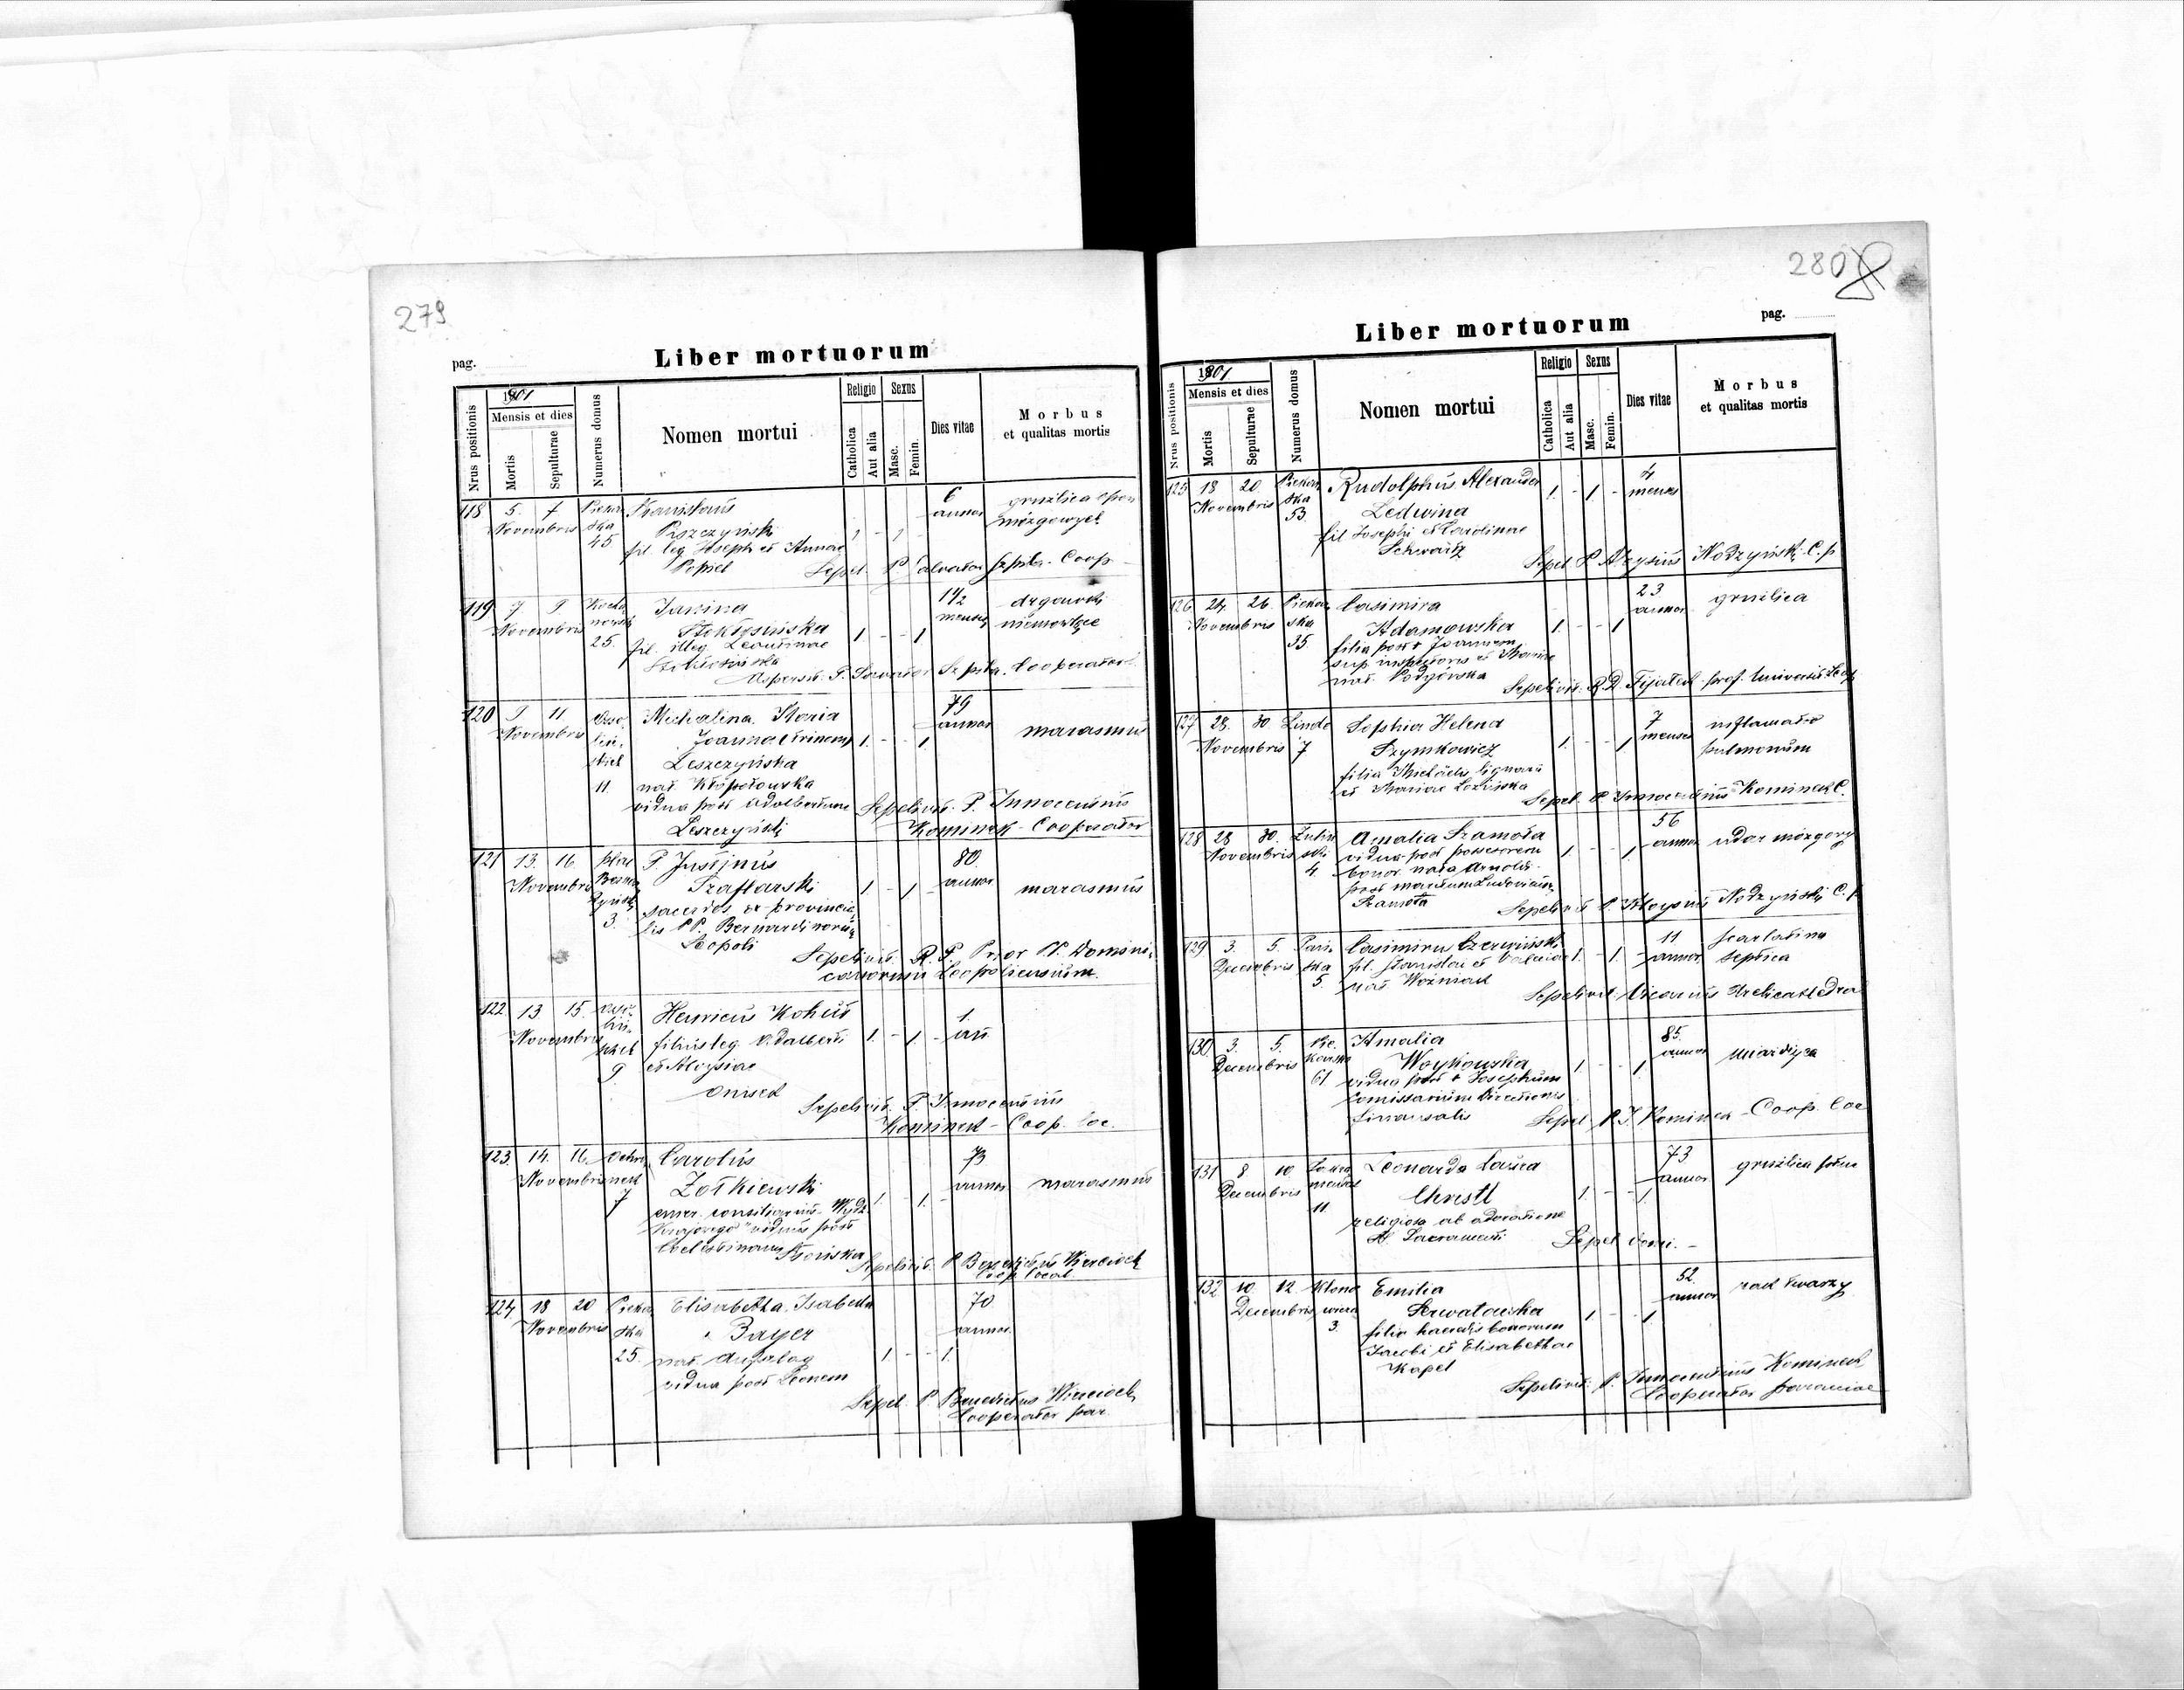 279
Liber mortuorum
pag.
Nrus positionis
1901
Mensis et dies
Mortis
Sepulturae
Numerus domus
Nomen mortui
Religio
Catholica
Aut alia
Sexus
Masc.
Femin.
Dies vitae
Morbus
et qualitas mortis
118 5. 7 Stanisłaus 6 gruźlica opon
Novembris ska annor mózgowych
45 fil. leg. Joseph et Annae 1 - 1 -
Popiel Sepel. P. Salvator Szpila. Coop
119 7 9 Janina 1 1/2 drgawki
Novembris mensis niemowlęce
25. fil. illeg. Leontinae 1 - - 1
Aspersit P. Salvator Szpila. Cooperator
120 9 11 Michalina Maria 79
Novembris Joanna annor marasmus
Leszczyńska 1 - - 1
11 nat. Kłopotowska
vidua post Adalbertum Sepelivit. P. Innocentius
Leszczyński Kominek - Cooperator
121 13 16 plac P. Justinus 80
Novembris Szaflarski 1 - 1 - annor marasmus
sacerdos ex-provincia
3 lis PP. Bernardinorum
Leopoli Sepelivit R. P. Prior P. Domini
canorum Leopoliensium
122 13 15. Henricus Kohut 1.
Novembris filius leg. Adalberti 1 - 1 - an
9 et Aloysiae
Sepelivit P. Innocentius
Kominek - Coop. loc.
123 14. 16. Carolus 73
Novembris Żołkiewski annor marasmus
7 emer. consiliarius Wydz. 1 - 1 -
Krajowego" viduus post
Sepelivit. P. Benedictus Wiercioch
Coop. local
124 18 20 Elisabetha Isabella 70
Novembris ska Bayer annor
25 nat. 1 - - 1
vidua post Leonem
Sepel. P. Benedictus Wiercioch
Cooperator par.
280
Liber mortuorum
pag.
Nrus positionis
1901
Mensis et dies
Mortis
Sepulturae
Numerus domus
Nomen mortui
Religio
Catholica
Aut alia
Sexus
Masc.
Femin.
Dies vitae
Morbus
et qualitas mortis
125 18 20. Rudolphus Alexander 4
Novembris ska Ledwina 1 - 1 - menses
53 fil Josephi et Carolinae
Schwartz
Sepel P. Aloysius Nodzyński C. p
126 24. 26. Casimira 23 gruźlica
Novembris ska Adamowska 1 - - 1 annor
35 filia post + Joannem
sup. inspectoris et Mariae
nat. Podgórska Sepelivit. R. D. Fijałek prof. Universit. Leop
127 28. 30 Linde Sophia Helena 7 inflamatio
Novembris 7 Szymkowicz 1 - - 1 menses pulmonum
filia Michaelis lignarii
et Mariae
Sepel. P. Innocentius Kominek C.
128 28 30. Amalia Szamota 56 udar mózgowy
Novembris vidua post possesorem 1 - - 1 annor
4. bonor. nata Arnold
post maritum Ludovicum
Szamota Sepelivit P. Aloysius Nodzyński C. p
129 3. 5. Casimirus Czerwiński 11 scarlatina
Decembris ska fil. Stanislai et 1 - 1 - annor septica
5 nat Woźniak
Sepelivit. Vicarius Archicatedra
130 3. 5. Amalia 85
Decembris Woykowska 1 - - 1 annor
61 vidua post + Josephum
comissarium Directionis
finansalis Sepel. P. I. Kominek - Coop. loc
131 8 10 Leonarda 73 gruźlica
Decembris Christl 1 - - 1 annor
11 religiosa ab adoratione
Sacramenti Sepel
132 10 12 Emilia 52 rak twarzy
Decembris Serwatowska 1 - - 1 annor
3. filia haeredis bonorum
Jacobi et Elisabethae
Kapel
Sepelivit. P. Innocentius Kominek
Cooperator parochiae